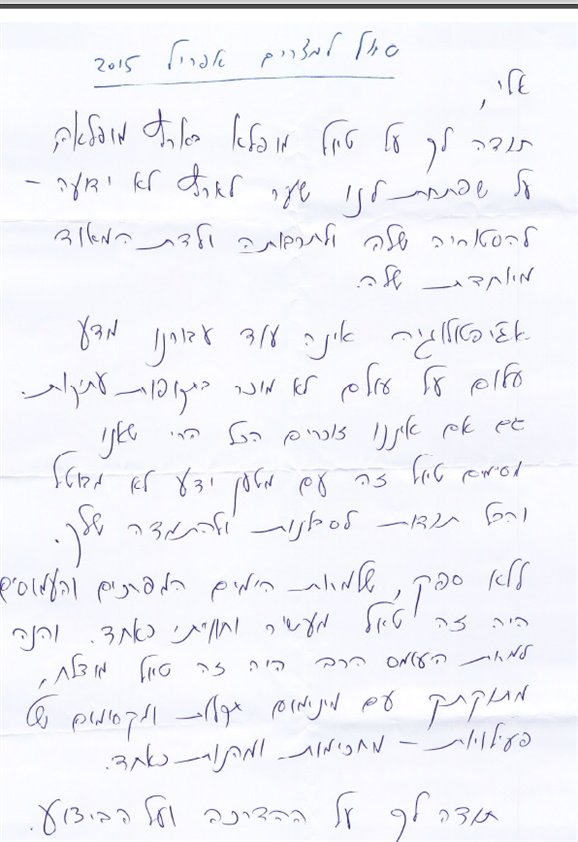 טיול למצרים אפריל 2015
אלי,
תודה לך על טיול מופלא בארץ מופלאה,
על שפתחת לנו שער לארץ לא ידועה –
להסטוריה שלה ולתרבותה ולדת המאוד
מיוחדת שלה.
אגיפטולוגיה אינה עוד עבורנו מדע
עלום על עולם לא מוכר בתקופות עתיקות.
גם אם איננו זוכרים הכל הרי שאנו
מסיימים טיול זה עם מטען ידע לא מבוטל
והכל תודות לסבלנות ולהתמדה שלך.
ללא ספק, שלמרות הימים המפרכים והעמוסים
היה זה טיול מעשיר וחוויתי כאחד. והנה
למרות העומס הרב היה זה טיול מוצלח,
מתוקתק עם מינימום תקלות ומקסימום של
פעילויות – מחכימות ומהנות כאחד.
תודה לך על ההדרכה ועל הביצוע.